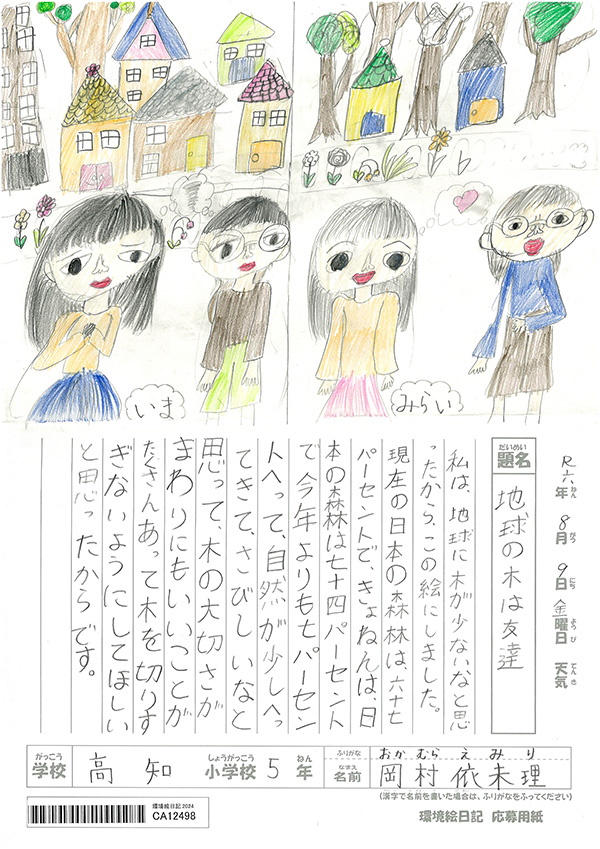 いま
みらい
R六年 8月 9日 金曜日 天気
ねん がつ にち ようび てんき
だいめい
題名
地球の木は友達
私は、地球に木が少ないなと思
ったから、この絵にしました。
現在の日本の森林は、六十七
パーセントで、きょねんは、日
本の森林は七十四パーセント
で今年よりも七パーセン
トへって、自然が少しへっ
てきて、さびしいなと
思って、木の大切さが
まわりにもいいことが
たくさんあって木を切りす
ぎないようにしてほしい
と思ったからです。
がっこう しょうがっこう ねん ふりがな おかむらえみり
学校 高知 小学校 5年 なまえ 名前 岡村依未理
(漢字で名前を書いた場合は、ふりがなをふってください)
環境絵日記 2024
CA12498
環境絵日記 応募用紙